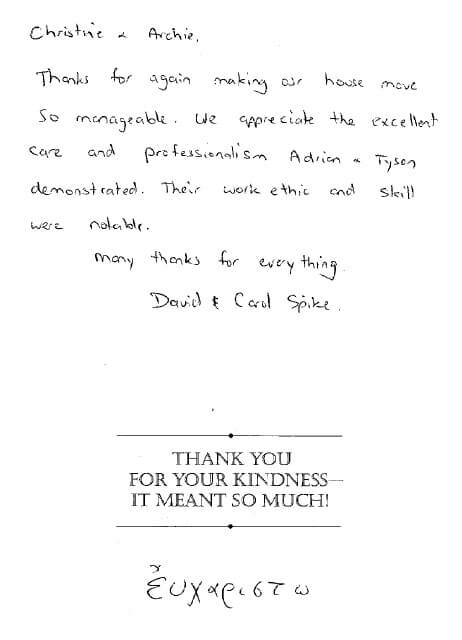 Christine & Archie,
Thanks for again making our house move
so manageable. We appreciate the excellent
care and professionalism Adrian & Tyson
demonstrated. Their work ethic and skill
were notable.
Many thanks for everything.
David & Carol Spike.
THANK YOU
FOR YOUR KINDNESS—
IT MEANT SO MUCH!
Ἐυχαριστω